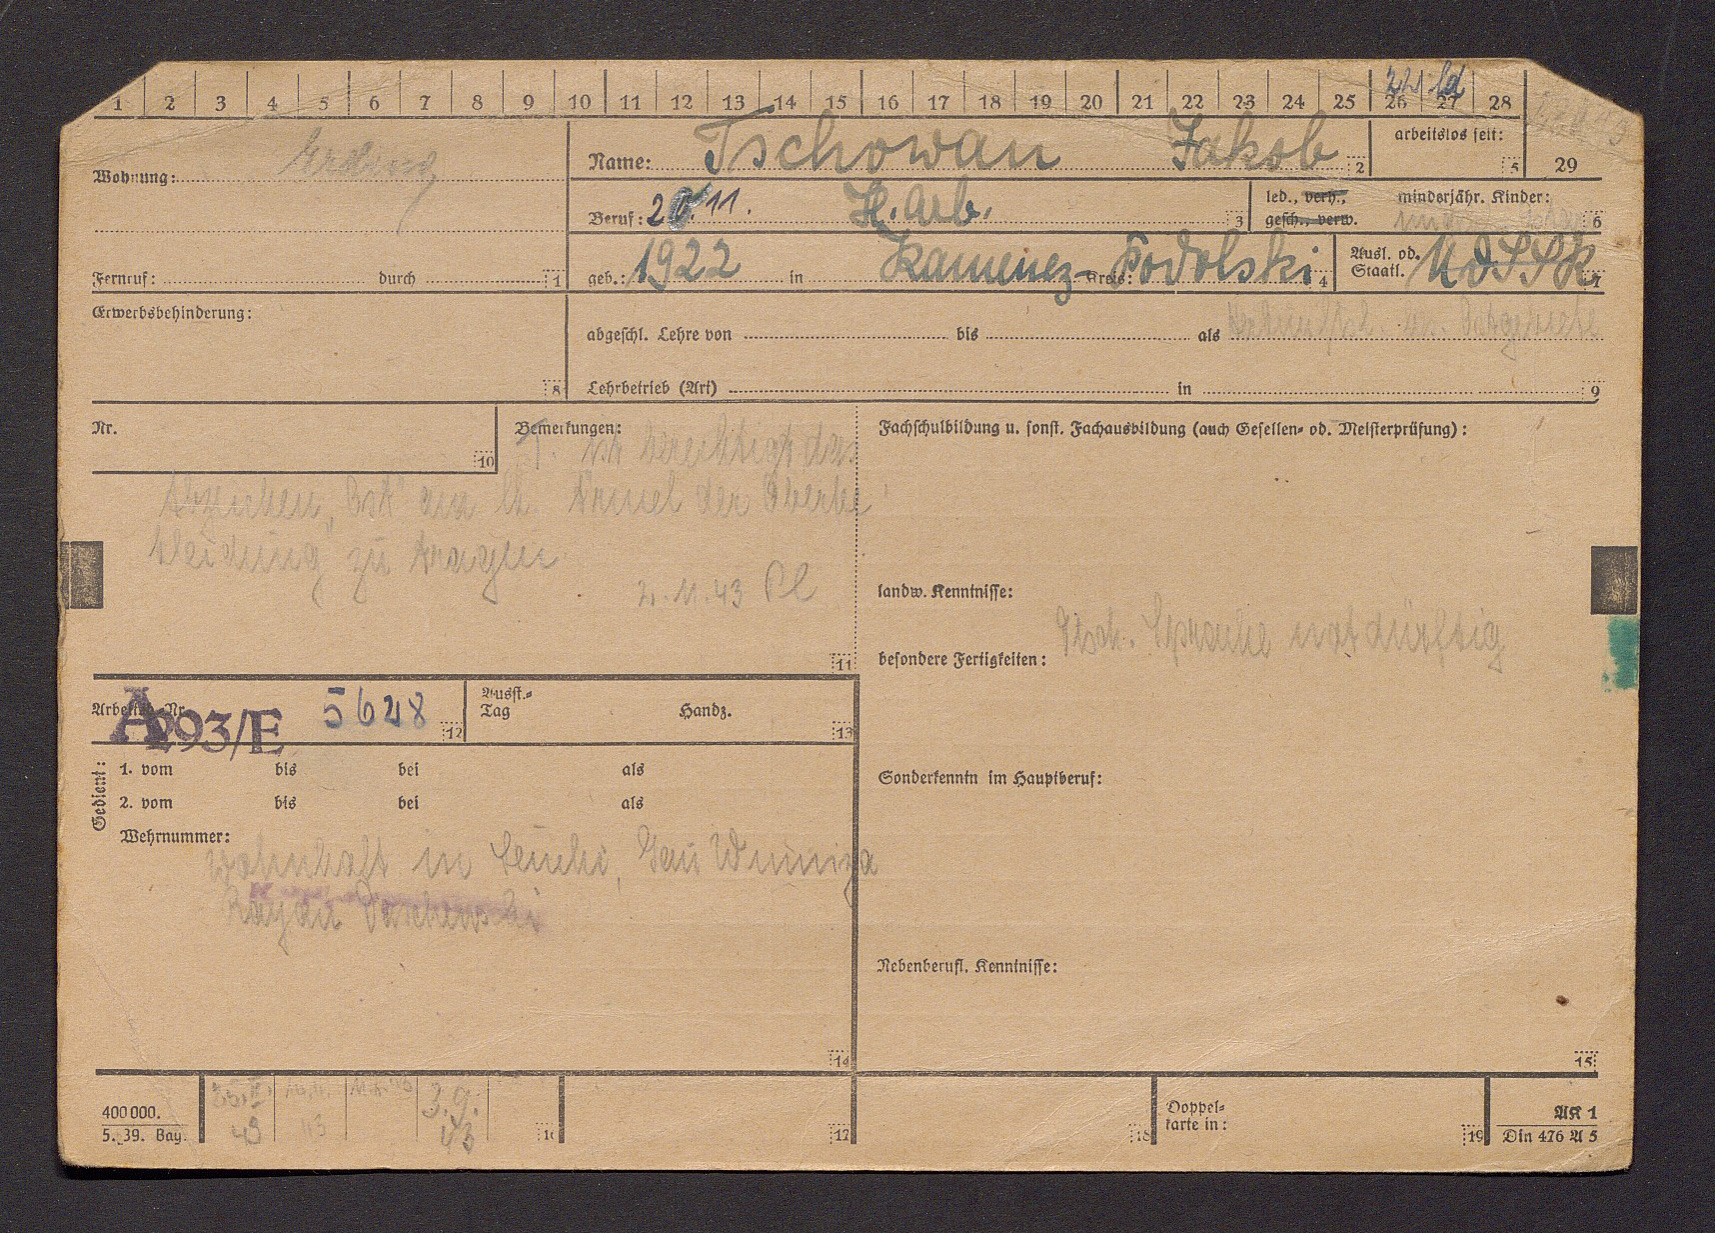 1 2 3 4 5 6 7 8 9 10 11 12 13 14 15 16 17 18 19 20 21 22 23 24 25 26 27 28
Wohnung: Erding
Name: Tschowan Jakob 2
arbeitslos seit: 5
29
Beruf: 20.11. H. Arb. 3
led., verh.,
gesch., verw.
minderjähr. Kinder: 6
Fernruf: durch 1
geb.: 1922 in Kamenez-Podolski Kreis: 4
Ausl. od.
Staatl. UdSSR 7
Erwerbsbehinderung:
8
abgeschl. Lehre von bis als
Lehrbetrieb (Art) in 9
Nr.
10
Bemerkungen:
T. ist berechtigt das
Abzeichen „Ost" am lk. Ärmel der Oberbe
kleidung zu tragen
2.11.43 Pl
11
Fachschulbildung u. sonst. Fachausbildung (auch Gesellen- od. Meisterprüfung):
landw. Kenntnisse:
besondere Fertigkeiten: Dtsch. Sprache notdürftig
Sonderkenntn im Hauptberuf:
Nebenberufl. Kenntnisse:
15
Arbeitsb.-Nr.
A293/E 5628 12
Ausst.-
Tag
Handz.
13
Gedient:
1. vom bis bei als
2. vom bis bei als
Wehrnummer:
wohnhaft in Gau Winniza
Rayon
14
400 000.
5. 39. Bay.
43
43
3.9.
43
16
17
18
Doppel-
karte in:
19
AK 1
Din 476 A 5